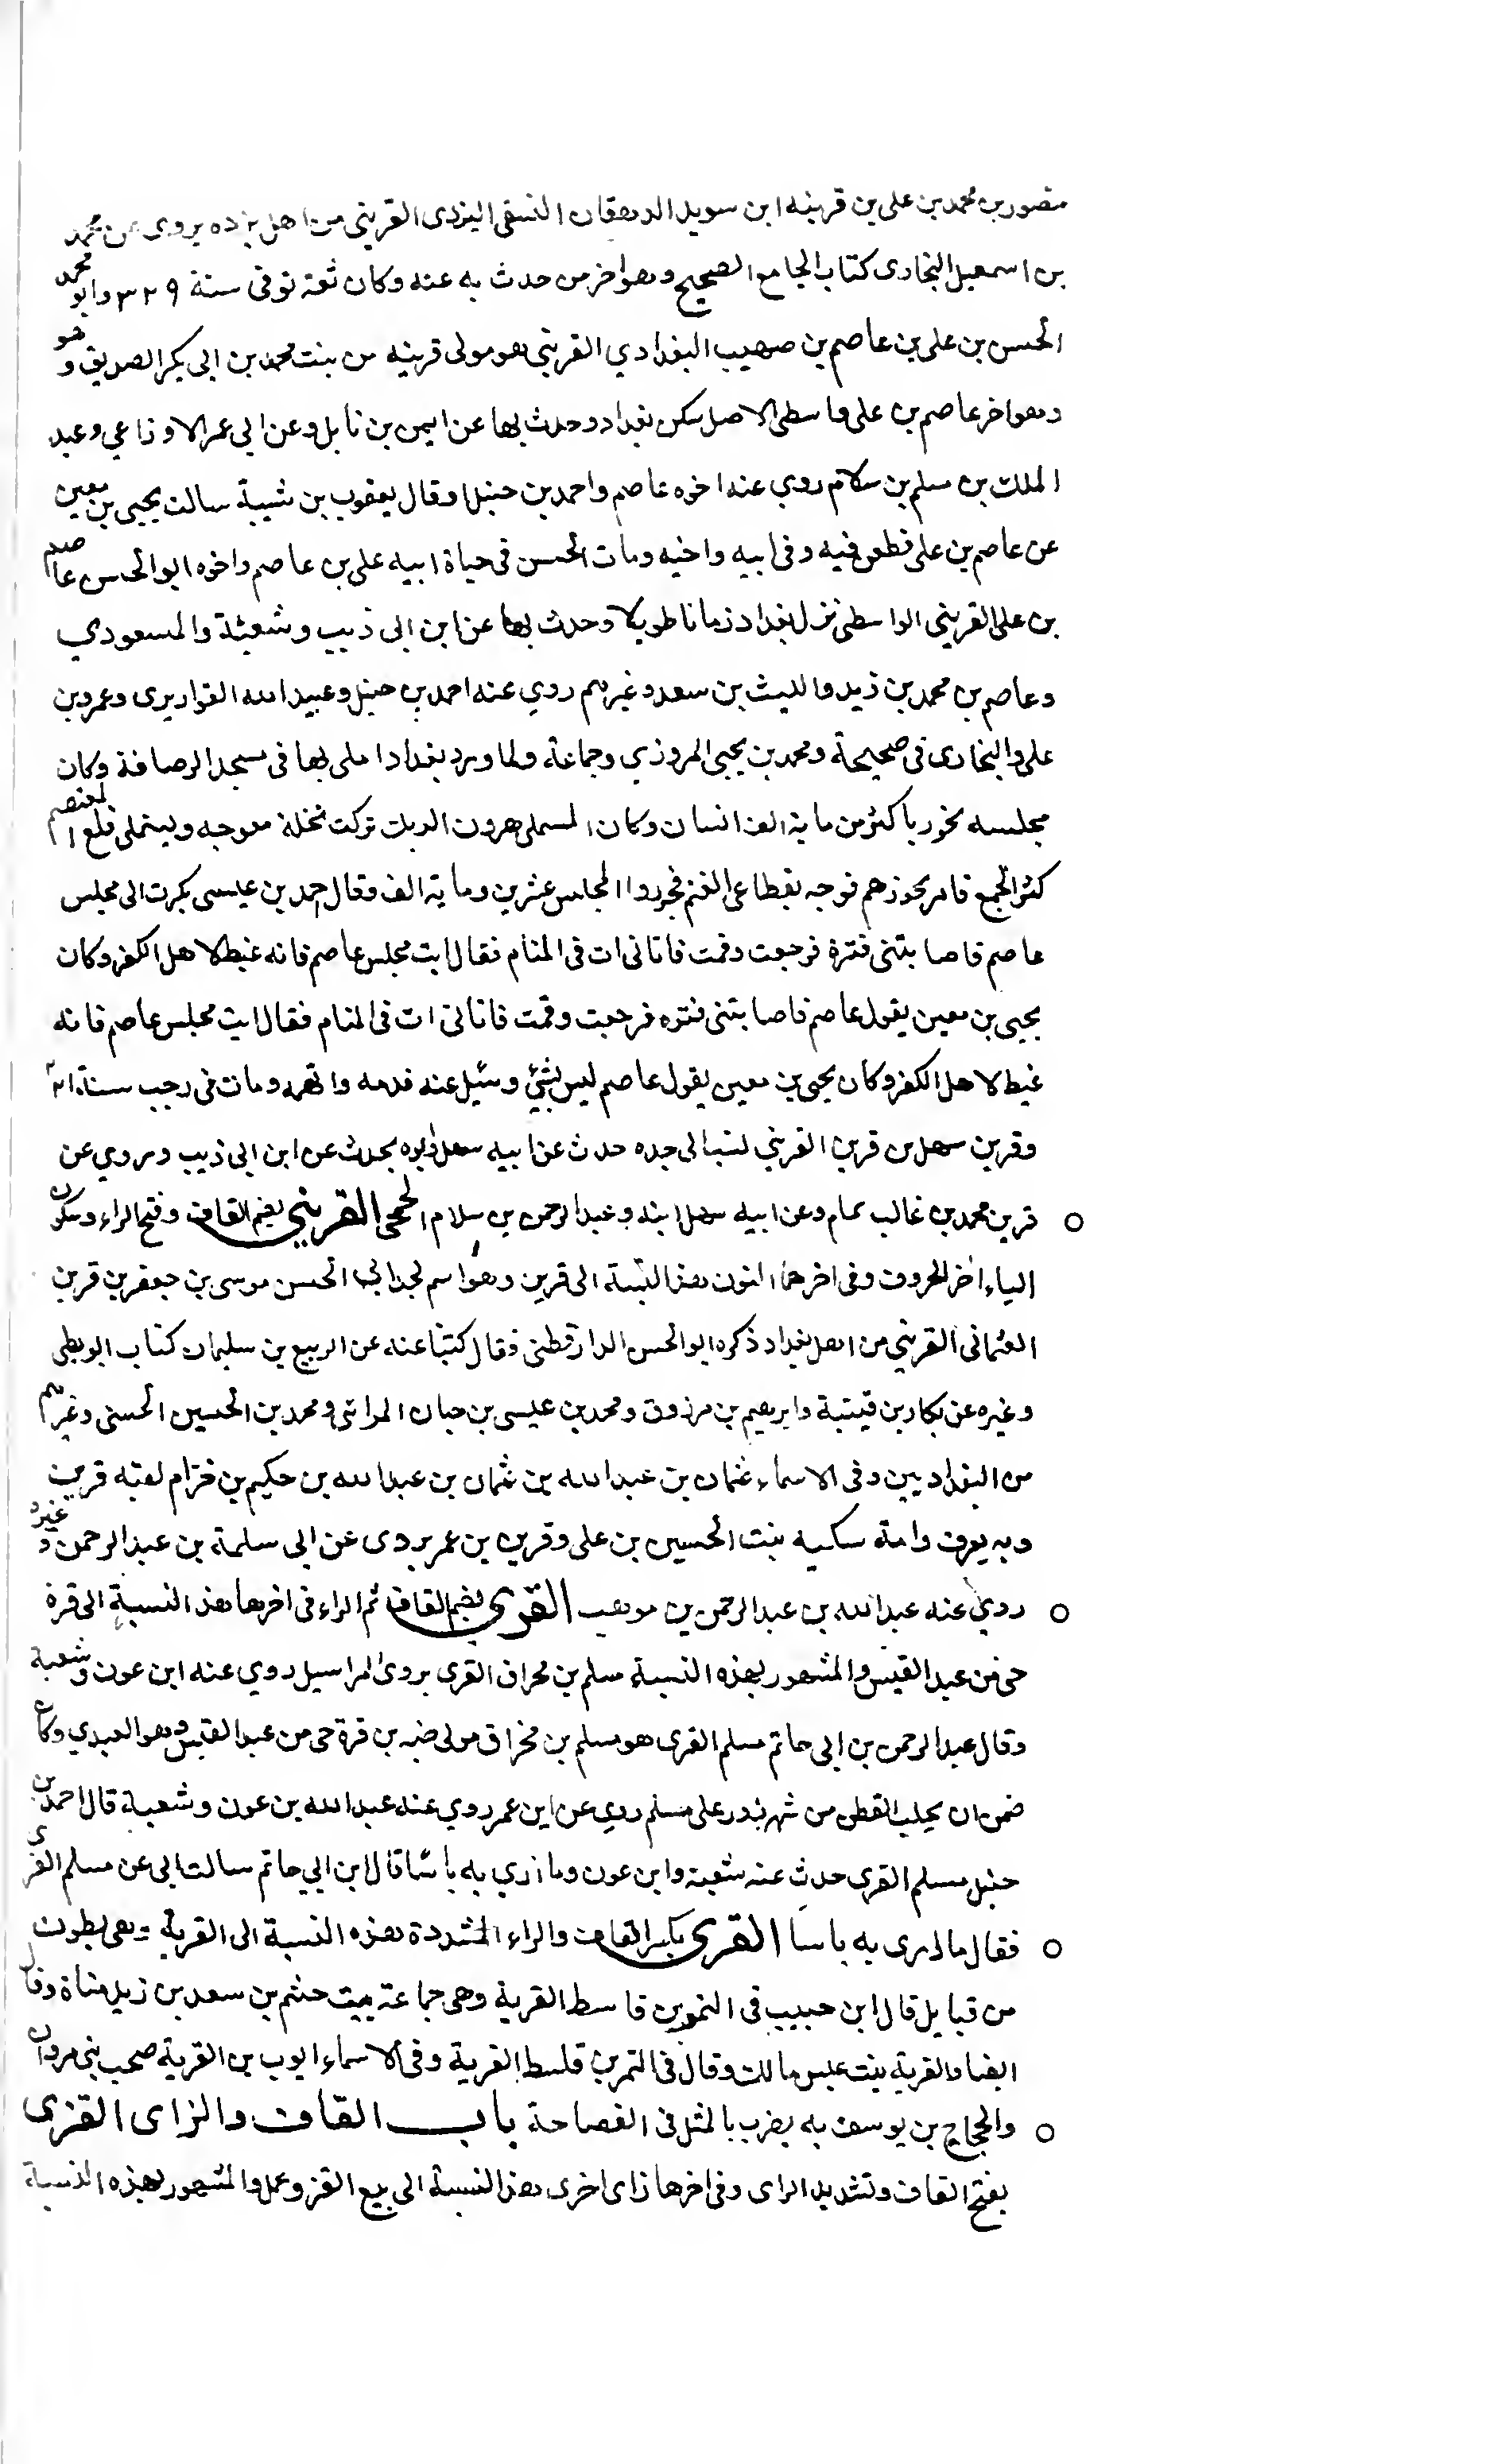 منصور بن محمد بن علي بن قرينه ابن سويد الدهقان النسفى اليزدى القرينى من اهل بزده يروى عن محمد
بن اسمعيل البخارى كتاب الجامع الصحيح وهو اخر من حدث به عنه وكان ثقة توفى سنة ٣٢٩ وابو محمد
الحسن بن على بن عاصم بن صهيب البغدادي القرينى هو مولى قرينه من بنت محمد بن ابى بكر الصديق و هو
وهو اخر عاصم بن على واسطى الاصل سكن بغداد وحدث بها عن ايمن بن نابل وعن ابى عمر الاوزاعي وعبد
الملك بن مسلم بن سلام روي عنه اخوه عاصم واحمد بن حنبل وقال يعقوب بن شيبة سالت يحيى بن معين
عن عاصم بن على فطعن فيه وفى ابيه واخيه ومات الحسن فى حياة ابيه على بن عاصم واخوه ابو الحسن عاصم
بن على القرينى الواسطى نزل بغداد زمانا طويلا وحدث بها عن ابن ابى ذيب وشعثة والمسعودي
وعاصم بن محمد بن زيد والليث بن سعد وغيرهم روي عنه احمد بن حنبل وعبيد الله القواريرى وعمرو بن
على والبخارى فى صحيحة ومحمد بن يحيى المروزي وجماعة ولما ورد بغداد املى بها فى مسجد الرصافة وكان
مجلسه نحور باكثر من ماية الف انسان وكان المسملى هرون الديك تركت نخلة معوجه ويستملى فلع المعتصم
كثر الجمع فامر بحوزهم فوجه بقطاعى الغنم فحوروا المجلس عشرين وماية الف وقال احمد بن عيسى بكرت الى مجلس
عاصم فاصابتنى فترة فرجعت وقمت فاتانى ات فى المنام فقال ايت مجلس عاصم فانه غيظ لاهل الكفر وكان
يحيى بن معين يقول عاصم فاصابتنى فتره فرجعت وقمت فاتانى ات فى المنام فقال ايت مجلس عاصم فانه
غيظ لاهل الكفر وكان يحيى بن معين يقول عاصم ليس بشيئ وسئل عنه فذمه واتهمه ومات فى رجب سنة ٢٢١
وقرين سهل بن قرين القرينى نسب الى جده حدث عن ابيه سهل وابوه يحدث عن ابن ابى ذيب وروي عن
قرين محمد بن غالب تمام وعن ابيه سهل ابنه وعبد الرحمن بن سلام الجمحى القريني بضم القاف وفتح الراء وسكون
الياء اخر الحروف وفى اخرها النون هذا النسبة الى قرين وهو اسم لجد ابى الحسن موسى بن جعفر بن قرين
العثمانى القرينى من اهل بغداد ذكره ابو الحسن الدارقطنى فقال كتبنا عنه عن الربيع بن سليمان كتاب البويطى
وغيره عن بكار بن قتيبة وابرهيم بن مرزوق ومحمد بن عيسى بن حبان المدائنى ومحمد بن الحسين الحسنى وغيرهم
من البغداديين وفى الاسماء عثمان بن عبد الله بن عثمان بن عبد الله بن حكيم بن حزام لقبه قرين
وبه يعرف وامة سكينه بنت الحسين بن على وقرين بن عمر يروى عن ابى سلمة بن عبد الرحمن وغيره
روي عنه عبد الله بن عبد الرحمن بن موهب القرى بضم القاف ثم الراء فى اخرها هذه النسبة الى قرة
حى من عبد القيس والمشهور بهذه النسبة مسلم بن محراق القرى يروى المراسيل روي عنه ابن عون وشعبة
وقال عبد الرحمن بن ابى حاتم مسلم القرى هو مسلم بن مخراق مولى ضبه بن قرة حى من عبد القيس وهو العبدي وكان
ضمن ان يجلب القطن من شهر بدر على مسلم روي عن ابن عمر روي عنه عبد الله بن عون وشعبة قال احمد بن
حنبل مسلم القرى حدث عنه شعبة وابن عون وما اري به باسا قال ابن ابي حاتم سالت ابى عن مسلم القرى
فقال ما ارى به باسا القرى بكسر القاف والراء المشددة هذه النسبة الى القرية وهى بطون
من قبايل قال ابن حبيب فى النمر بن قاسط القرية وهى جماعة بيت حشم بن سعد بن زيد مناة وقال
ايضا والقرية بنت عبس مالك وقال فى النمر بن قاسط القرية وفى الاسماء ايوب بن القرية صحب بنى مروان
والحجاج بن يوسف به يضرب بالمثل فى الفصاحة باب القاف والزاى القزى
بفتح القاف وتشديد الزاى وفى اخرها زاى اخرى هذا النسبة الى بيع القز وعمل والمشهور بهذه النسبة